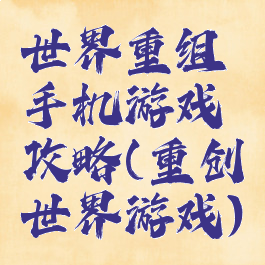 世界重组
手机游戏
攻略(重创
世界游戏)